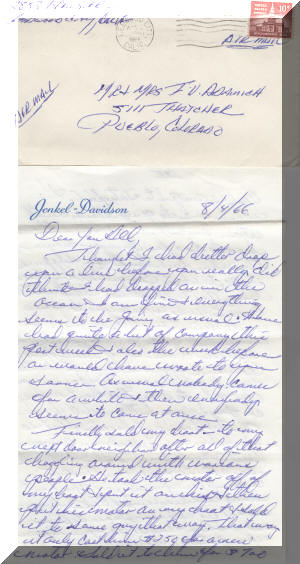 AIR MAIL
AIR MAIL
Mr & Mrs F. V.
5111 Thatcher
Pueblo, Colorado
Jenkel-Davidson
8/4/66
Dear You All,
Thought I had better drop
you a line before you really did
think I had
ocean. I am fine & everything
seems to be going as usual. I have
had quite a bit of company this
past week & also the week before
or would have wrote to you
sooner. As usual nobody comes
for awhile & then everybody
seems to come at once.
Finally sold my boat - to my
next door neighbor after all of that
around with various
people. He took the motor off of
my boat & put it on his & then
put his motor on my boat & sold
it to some guy that way. That way
it only cost him $250 for a new
motor & I sold it to him for $700